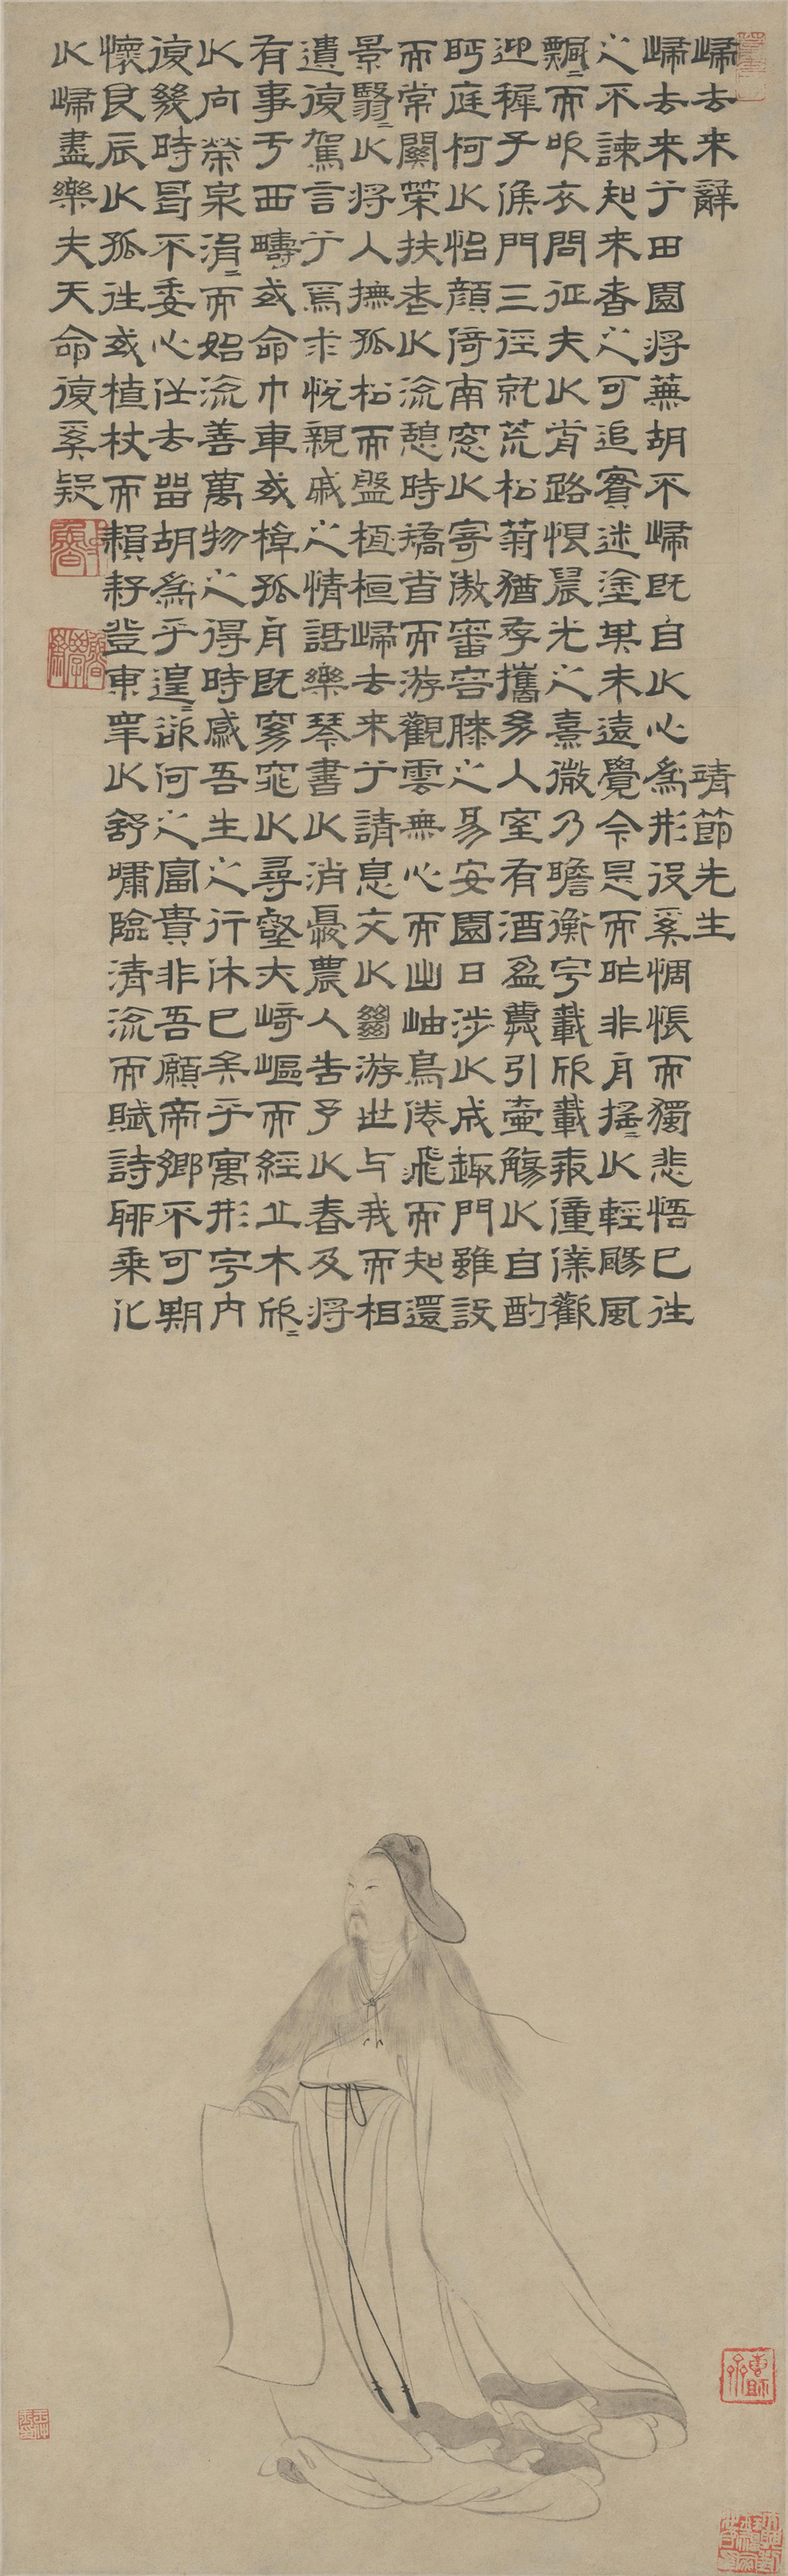 歸去来辭 靖節先生
歸去来兮田園將蕪胡不歸既自以心為形役奚惆悵而獨悲悟已往
之不諫知来者之可追實迷塗其未遠覺今是而昨非舟搖〻以輕颺風
飄〻而吹衣問征夫以前路恨晨光之熹微乃瞻衡宇載欣載奔僮僕歡
迎稚子候門三徑就荒松菊猶存攜幼入室有酒盈樽引壺觴以自酌
眄庭柯以怡顏倚南窗以寄傲審容膝之易安園日涉以成趣門雖設
而常關策扶老以流憩時矯首而游觀雲無心而出岫鳥倦飛而知還
景翳〻以將入撫孤松而盤桓歸去来兮請息交以絕游世与我而相
遺復駕言兮焉求悅親戚之情話樂琴書以消憂農人告予以春及將
有事于西疇或命巾車或棹孤舟既窈窕以尋壑亦崎嶇而經丘木欣〻
以向榮泉涓〻而始流善萬物之得時感吾生之行休已矣乎寓形宇內
復幾時曷不委心任去留胡為乎遑〻欲何之富貴非吾願帝鄉不可期
懷良辰以孤往或植杖而耘耔登東皋以舒嘯臨清流而賦詩聊乘化
以歸盡樂夫天命復奚疑